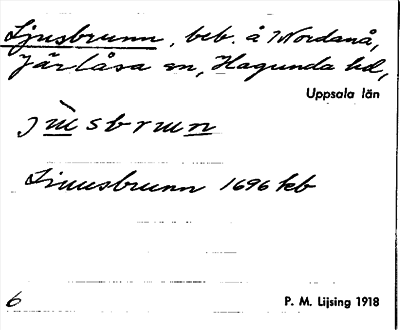 Ljusbrunn, beb. å Nordanå,
Järlåsa sn, Hagunda hd,
Uppsala län
jùsbrun
Liuusbrunn 1696 kb
6 P. M. Lijsing 1918